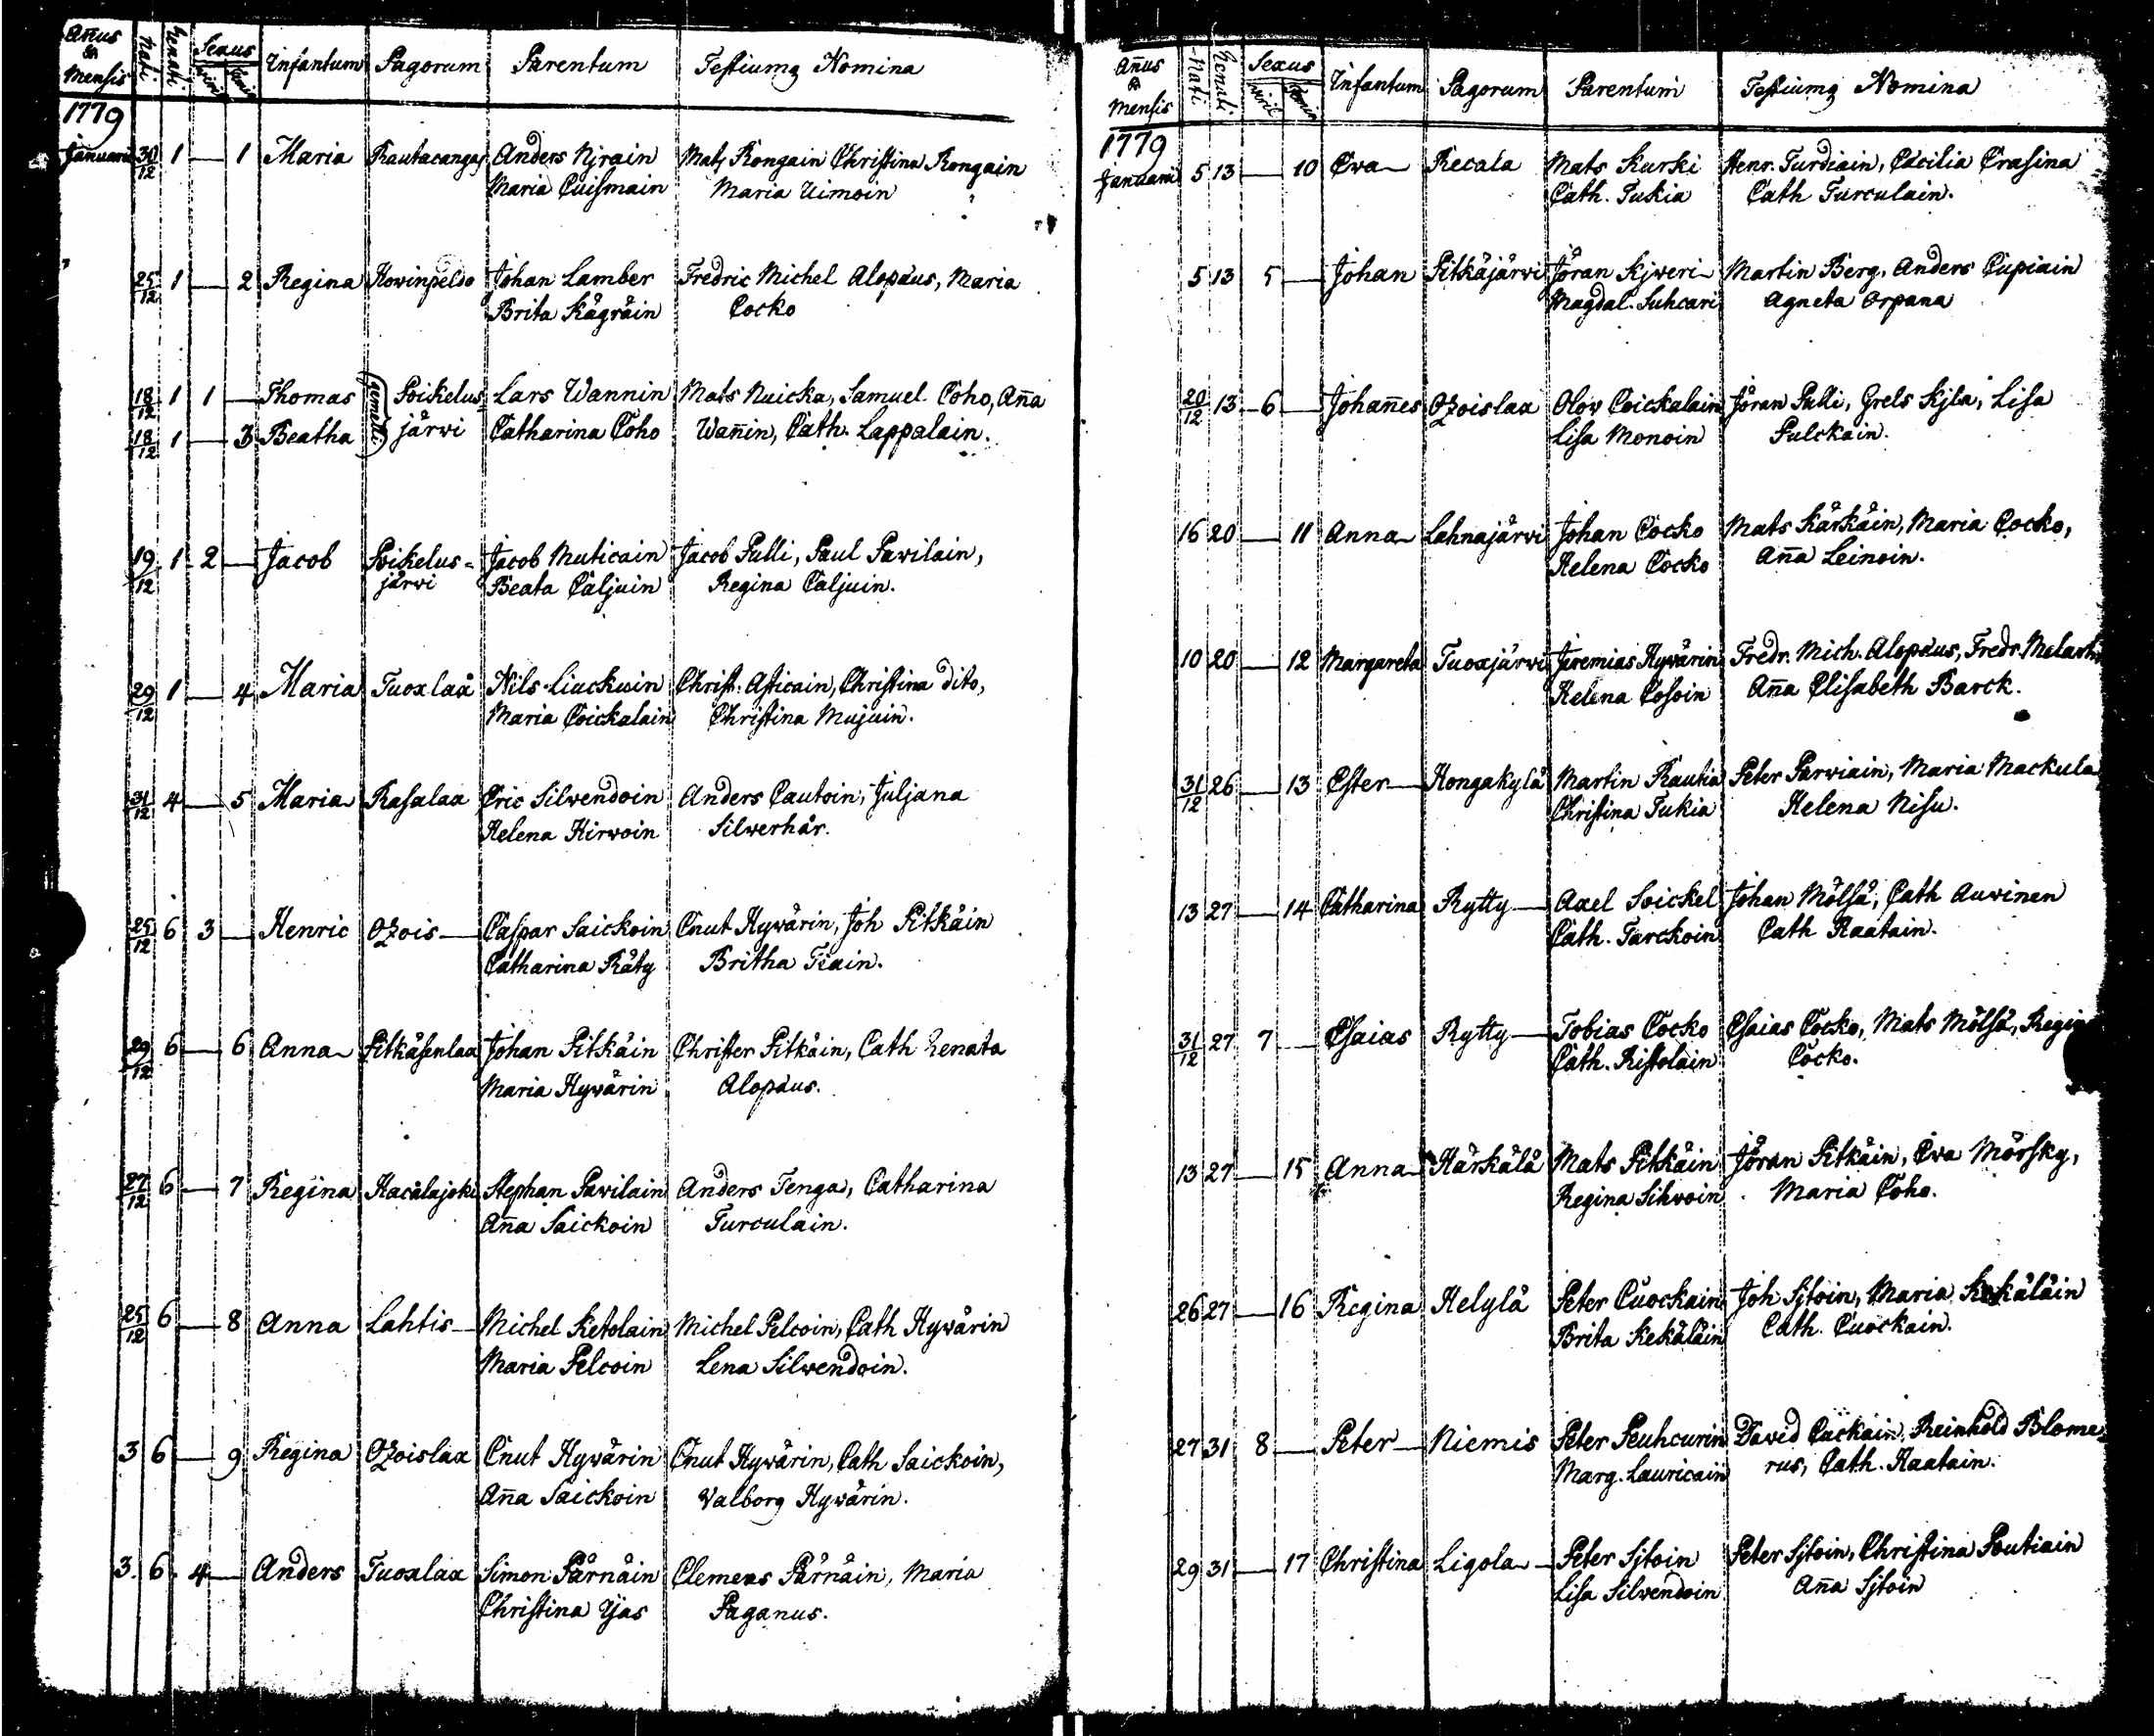 Añus & Mensis Nati. Renati. Sexus Viril Femin Infantum Pagorum Parentum Testiumq Nomina
1779
Januarii 30/12 1 — 1 Maria Rautacangas Anders Njrain Mats Rongain Christina Rongain
Maria Cuismain Maria Uimoin
25/12 1 — 2 Regina Howinpeldo Johan Lamber Fredric Michel Alopæus, Maria
Brita Kägräin Cocko
18/12 1 1 — Thomas (gemelli) Soikelus= Lars Wannin Mats Nuicka, Samuel Coho, Aña
18/12 1 — 3 Beatha järwi Catharina Coho Wañin, Cath. Lappalain.
19/12 1 2 — Jacob Soikelus= Jacob Muticain Jacob Pulli, Paul Pawilain,
järwi Beata Caljuin Regina Caljuin.
29/12 1 — 4 Maria Tuoxlax Nils Liuckuin Christ: Asticain, Christina dito,
Maria Coickalain Christina Mujuin.
31/12 4 — 5 Maria Rasalax Eric Silwendoin Anders Cautoin, Juljana
Helena Hirwoin Silwerhår.
25/12 6 3 — Henric Ozois — Caspar Saickoin Cnut Hywärin, Joh Pitkäin
Catharina Räty Britha Tiain.
29/12 6 — 6 Anna Pitkäsenlax Johan Pitkäin Christer Pitkäin, Cath Renata
Maria Hywärin Alopæus.
27/12 6 — 7 Regina Hacalajoki Stephan Pawilain Anders Tenga, Catharina
Aña Saickoin Turculain.
25/12 6 — 8 Anna Lahtis — Michel Ketolain Michel Pelcoin, Cath Hywärin
Maria Pelcoin Lena Silwendoin.
3 6 — 9 Regina Ozoislax Cnut Hywärin Cnut Hywärin, Cath Saickoin,
Aña Saickoin Valborg Hywärin.
3. 6. 4 — Anders Tuoxlax Simon Pärnäin Clemens Pärnäin, Maria
Christina Yjas Paganus.
Añus & Mensis Nati Renati. Sexus Viril Femin Infantum Pagorum Parentum Testiumq Nomina
1779
Januarii 5 13 — 10 Ewa Recala Mats Kurki Henr. Turdiain, Cæcilia Erasina
Cath. Tukia Cath Turculain.
5 13 5 — Johan Pitkäjärwi Jöran Kjweri Martin Berg, Anders Cupiain
Magdal. Suhcari Agneta Orpana
20/12 13 6 — Johañes Ozoislax Olov Coickalain Jöran Pulli, Grels Kjla, Lisa
Lisa Monoin Pulckain.
16 20 — 11 Anna Lahnajärwi Johan Cocko Mats Kärkäin, Maria Cocko,
Helena Cocko Aña Leinoin.
10 20 — 12 Margareta Tuoxjärwi Jeremias Hywärin Fredr. Mich. Alopæus, Fredr. Malart
Helena Cosoin Aña Elisabeth Barck.
31/12 26 — 13 Ester — Hongakylä Martin Rautia Peter Parwiain, Maria Mackula
Christina Tukia Helena Nisu.
13 27 — 14 Catharina Rytty — Axel Soickel Johan Mölsä, Cath Auwinen
Cath. Tarckoin Cath Raatain.
31/12 27 7 — Esaias Rytty — Tobias Cocko Esaias Cocko, Mats Mölsä, Regin
Cath. Ristolain Cocko.
13 27 — 15 Anna Härkälä Mats Pitkäin Jöran Pitkäin, Ewa Mörsky,
Regina Sihwoin Maria Coho.
26 27 — 16 Regina Helylä Peter Cuockain Joh Sjtoin, Maria Kekäläin
Brita Kekäläin Cath. Cuockain.
27 31 8 — Peter — Niemis Peter Peuhcurin David Cackain, Reinhold Blome=
Marg. Lauricain rus, Cath. Raatain.
29 31 — 17 Christina Ligola — Peter Sjtoin Peter Sjtoin, Christina Poutiain
Lisa Silvendoin Aña Sjtoin